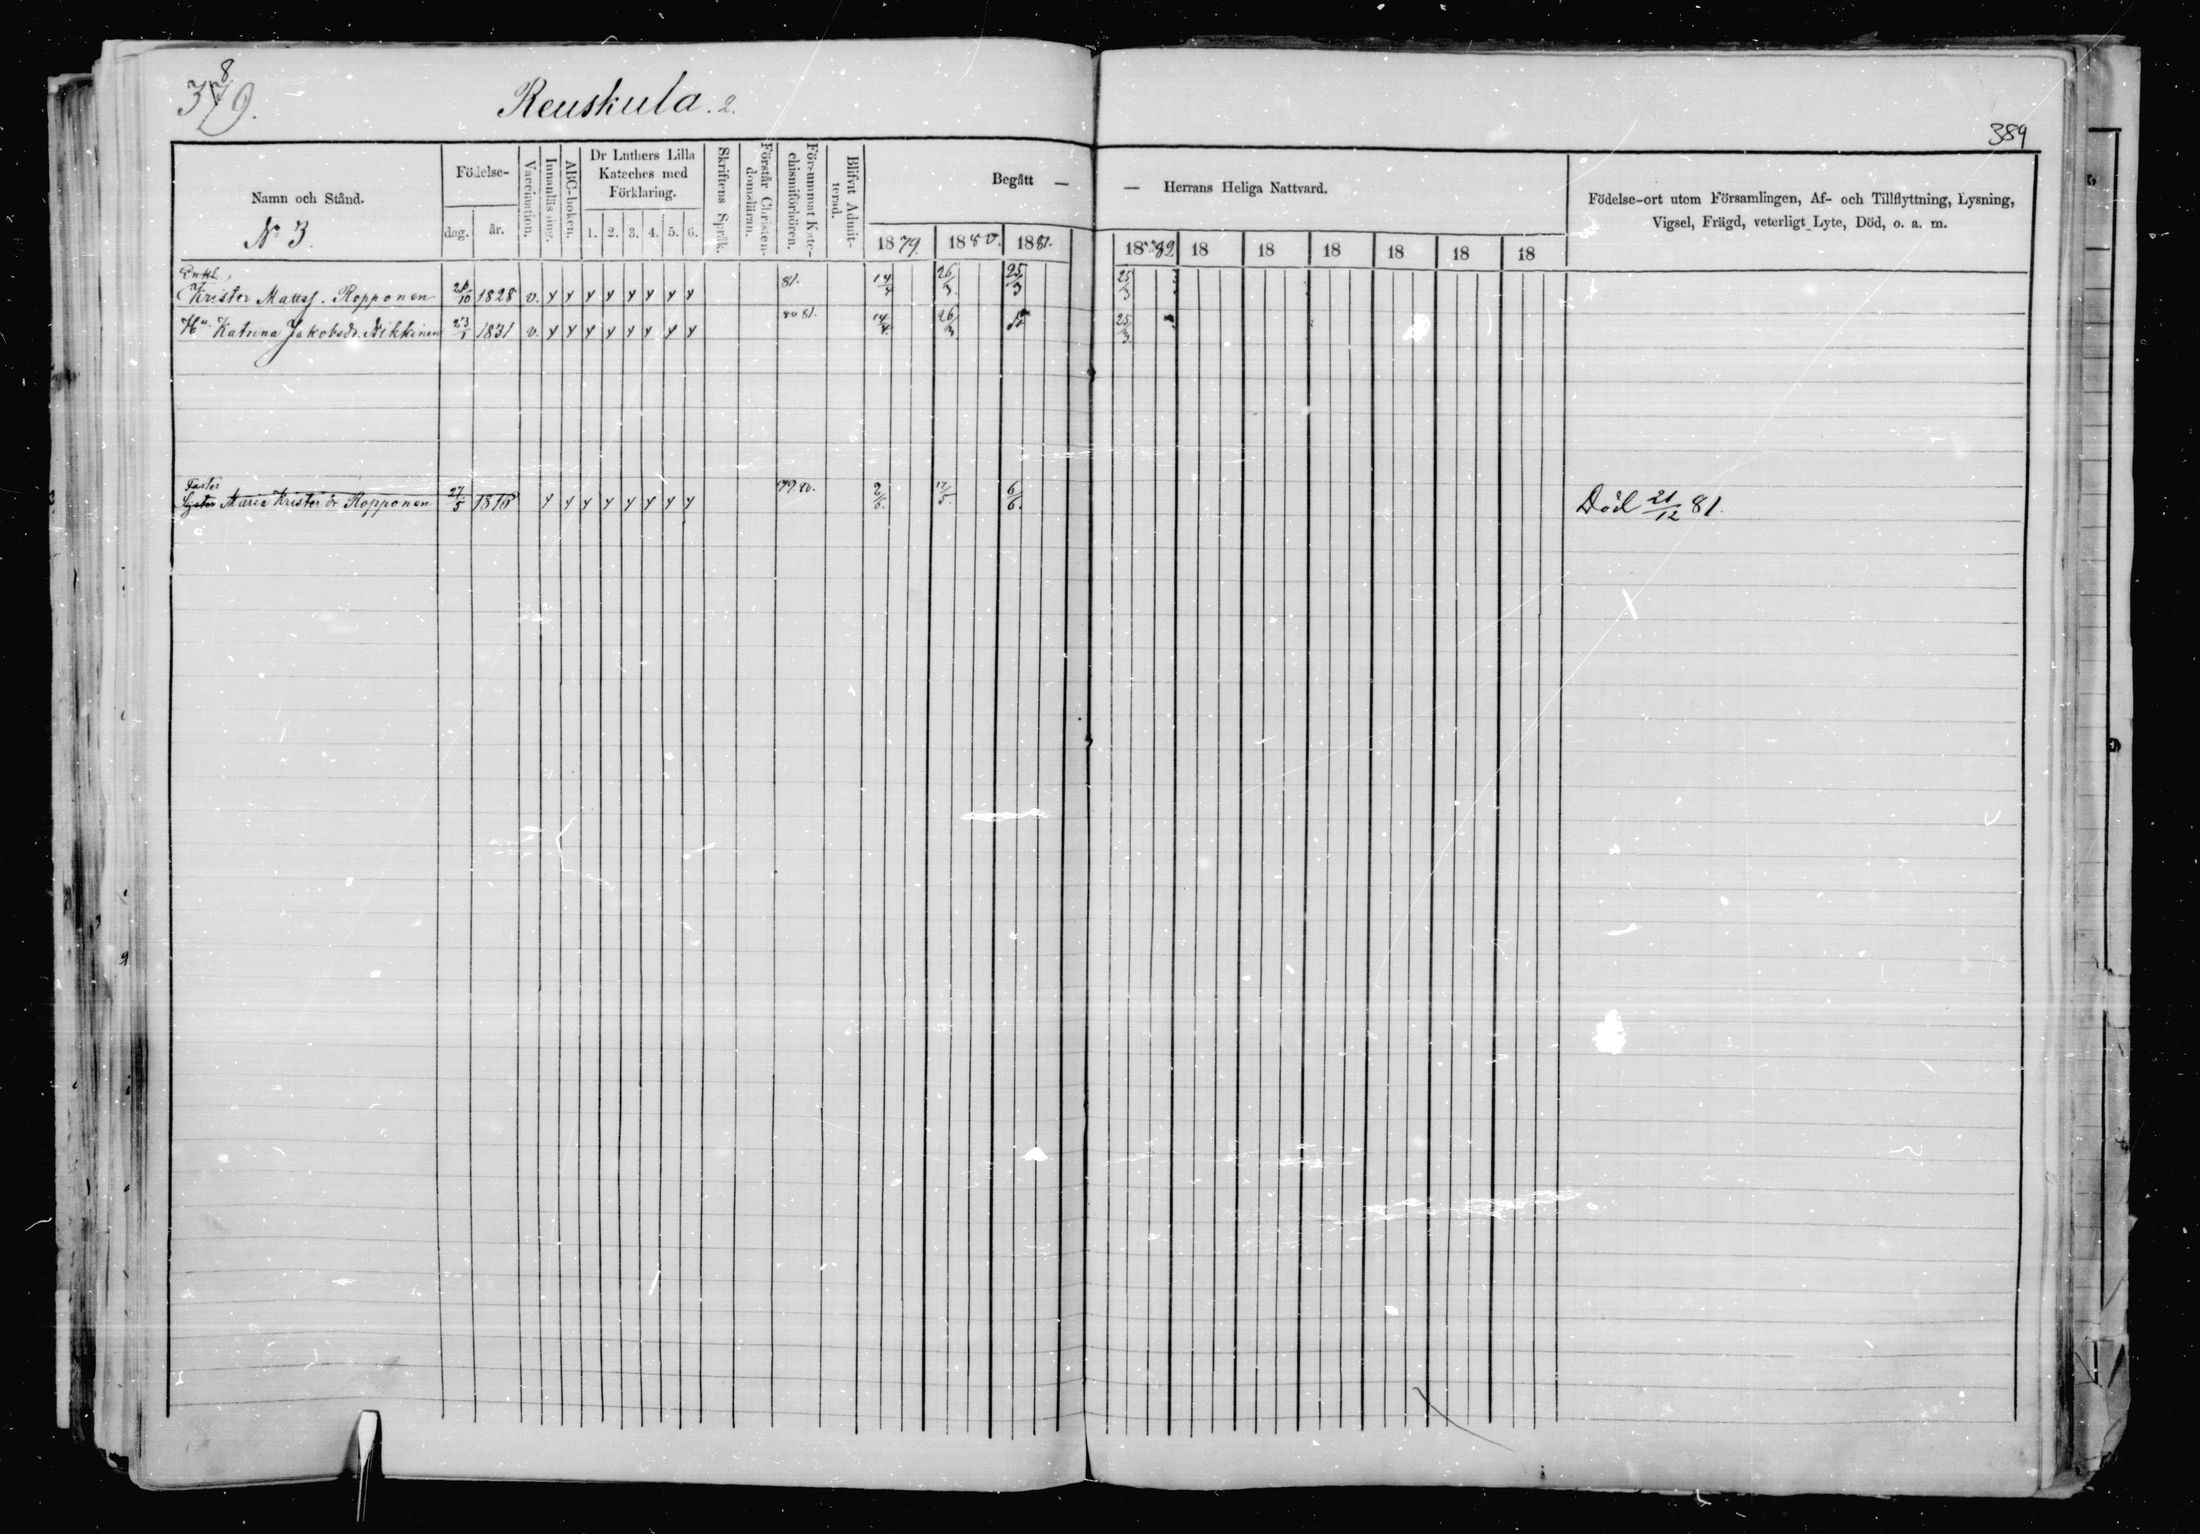 389.
Reuskula. 2.
389
Namn och Stånd.
Nº 3.
Födelse-
dag. år.
Vaccination.
Innanläsning.
ABC-boken.
Dr Luthers Lilla Kateches med Förklaring.
1. 2. 3. 4. 5. 6.
Skriftens Språk.
Förstår Christendomsläran.
Försummat Katechismiförhören.
Blifvit Admitterad.
Begått —
— Herrans Heliga Nattvard.
1879. 1880. 1881. 1882 18 18 18 18 18 18
Födelse-ort utom Församlingen, Af- och Tillflyttning, Lysning,
Vigsel, Frägd, veterligt Lyte, Död, o. a. m.
Krister Matts. Ropponen 28/10 1828 v. y y y y y y y y 81. 14/4 26/3. 25/3 25/3
Hu. Katrina Jakobsdr. Nikkinen 23/1 1831 v. y y y y y y y y 80 81. 14/4. 26/3 25/3.
Faster
Syster Maria Kristersdr Ropponen 27/5 1818 y y y y y y y y 79.80. 2/6. 17/5. 6/6. Död 21/12 81.